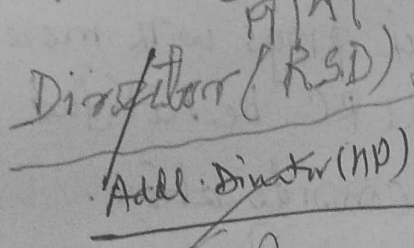 Director (RSD)
Addl. Director (NP)